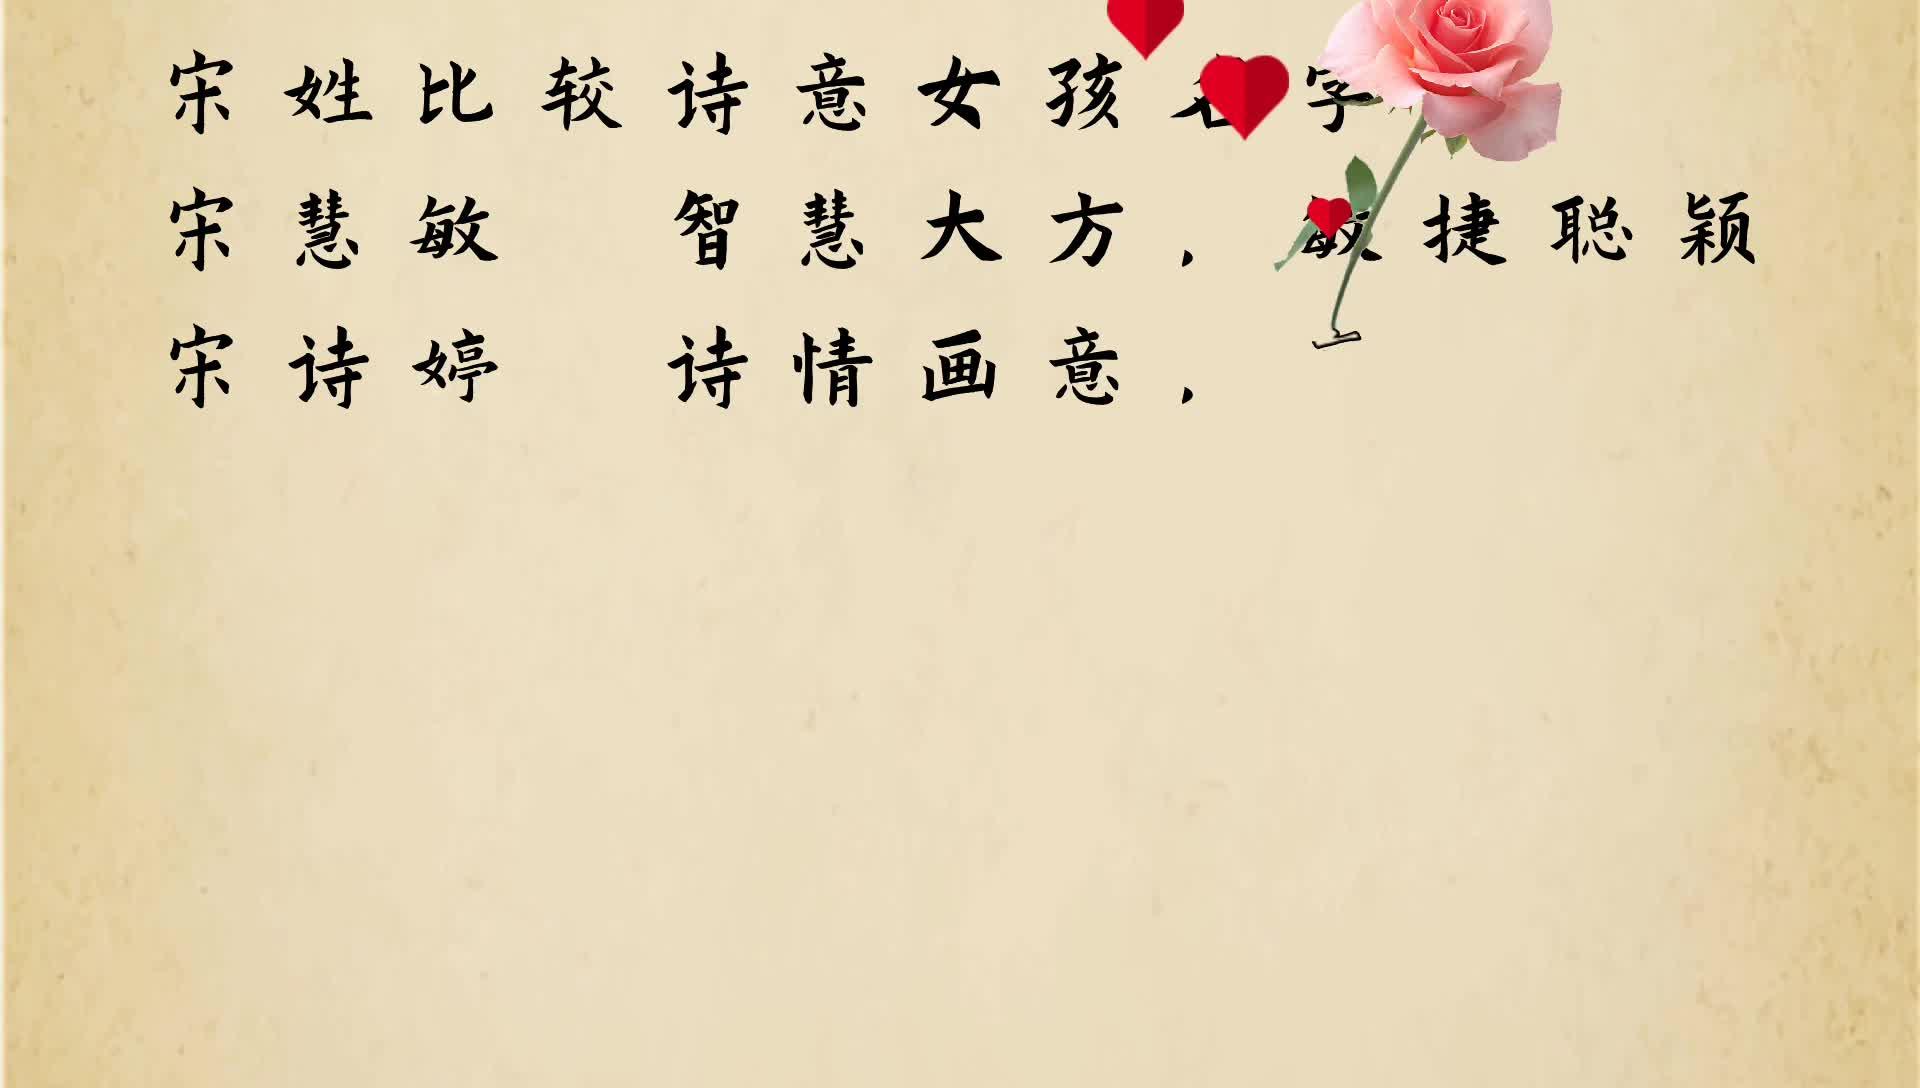 宋姓比较诗意女孩名字
宋慧敏 智慧大方，敏捷聪颖
宋诗婷 诗情画意，